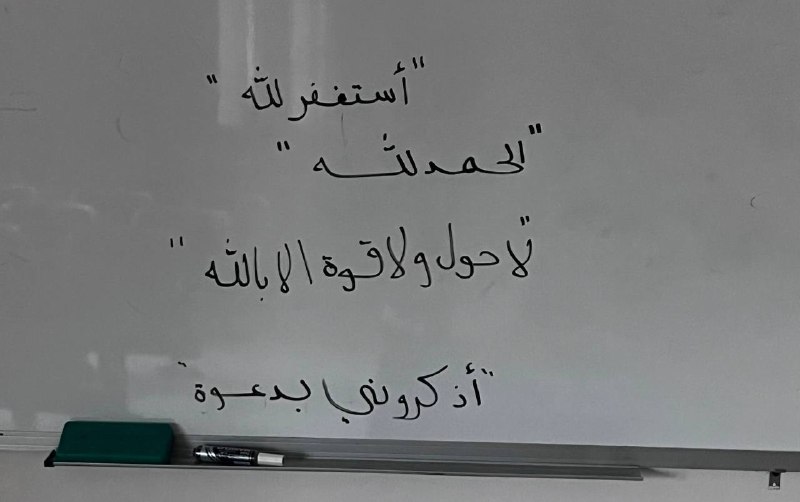 "أستغفر لله"
"الحمد لله"
"لا حول ولا قوة الا بالله"
"أذكروني بدعوة"